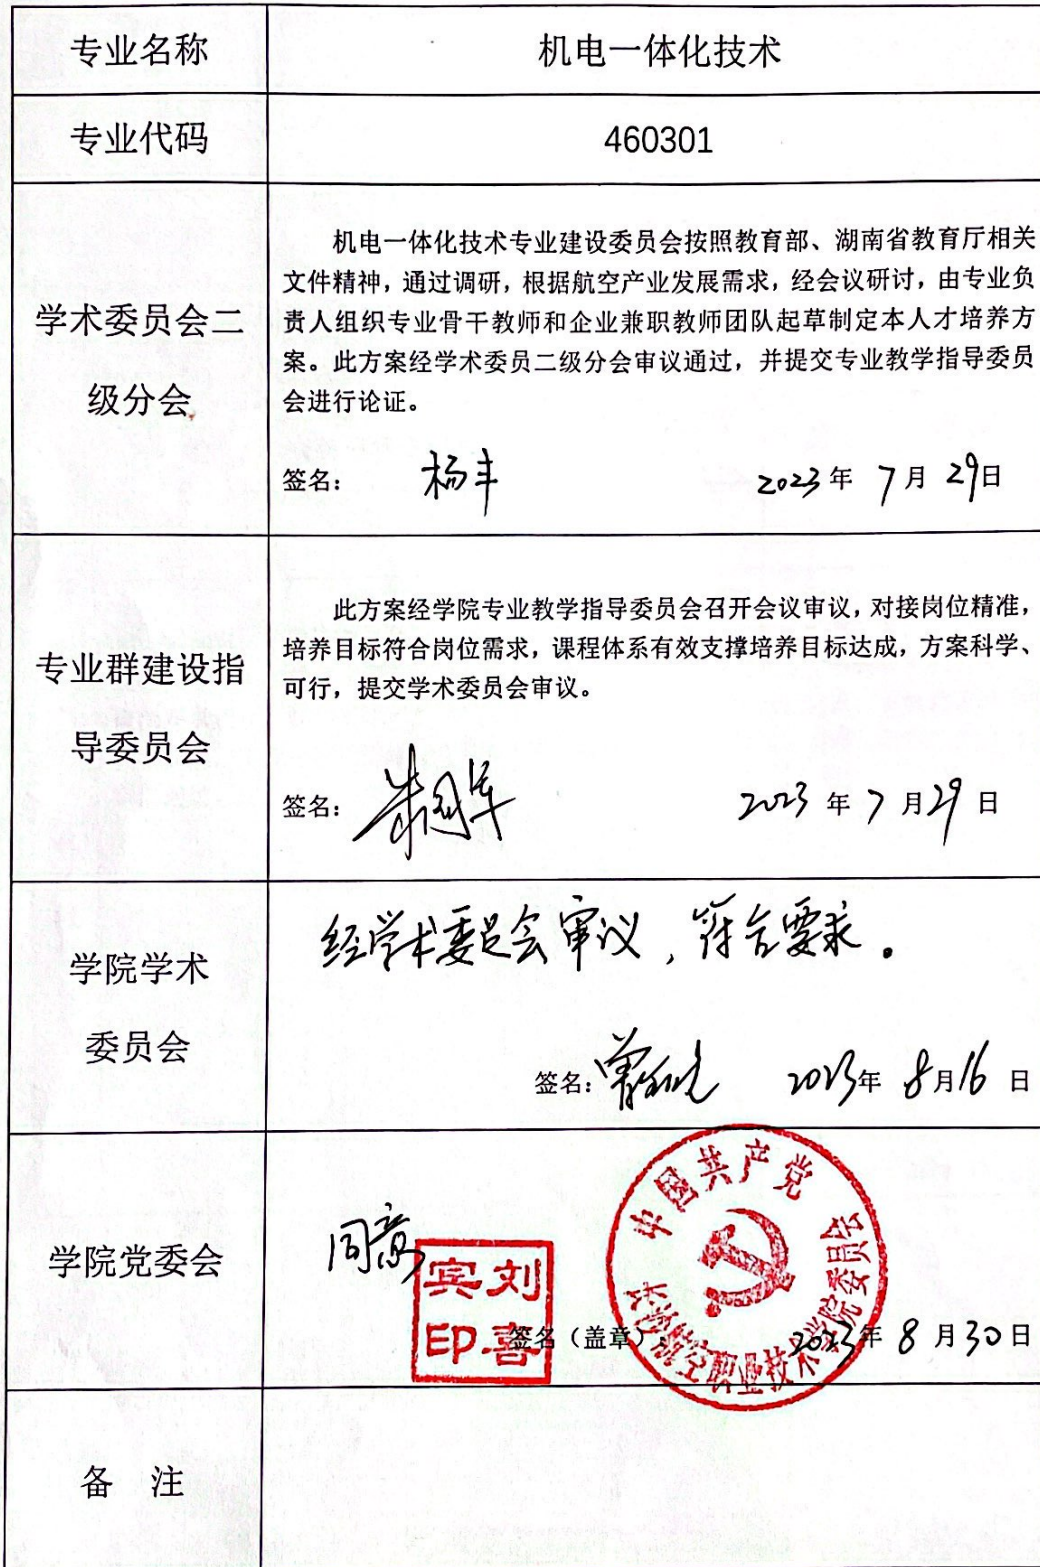 专业名称 机电一体化技术
专业代码 460301
学术委员会二
级分会
机电一体化技术专业建设委员会按照教育部、湖南省教育厅相关
文件精神，通过调研，根据航空产业发展需求，经会议研讨，由专业负
责人组织专业骨干教师和企业兼职教师团队起草制定本人才培养方
案。此方案经学术委员二级分会审议通过，并提交专业教学指导委员
会进行论证。
签名： 杨丰 2023年 7月 29日
专业群建设指
导委员会
此方案经学院专业教学指导委员会召开会议审议，对接岗位精准，
培养目标符合岗位需求，课程体系有效支撑培养目标达成，方案科学、
可行，提交学术委员会审议。
签名： 朱国军 2023 年 7 月 29 日
学院学术
委员会
经学术委员会审议，符合要求。
签名： 2023年 8月16 日
学院党委会
同意
刘喜
宾印
中国共产党
长沙航空职业技术学院委员会
签名（盖章）： 2023年 8 月30日
备 注